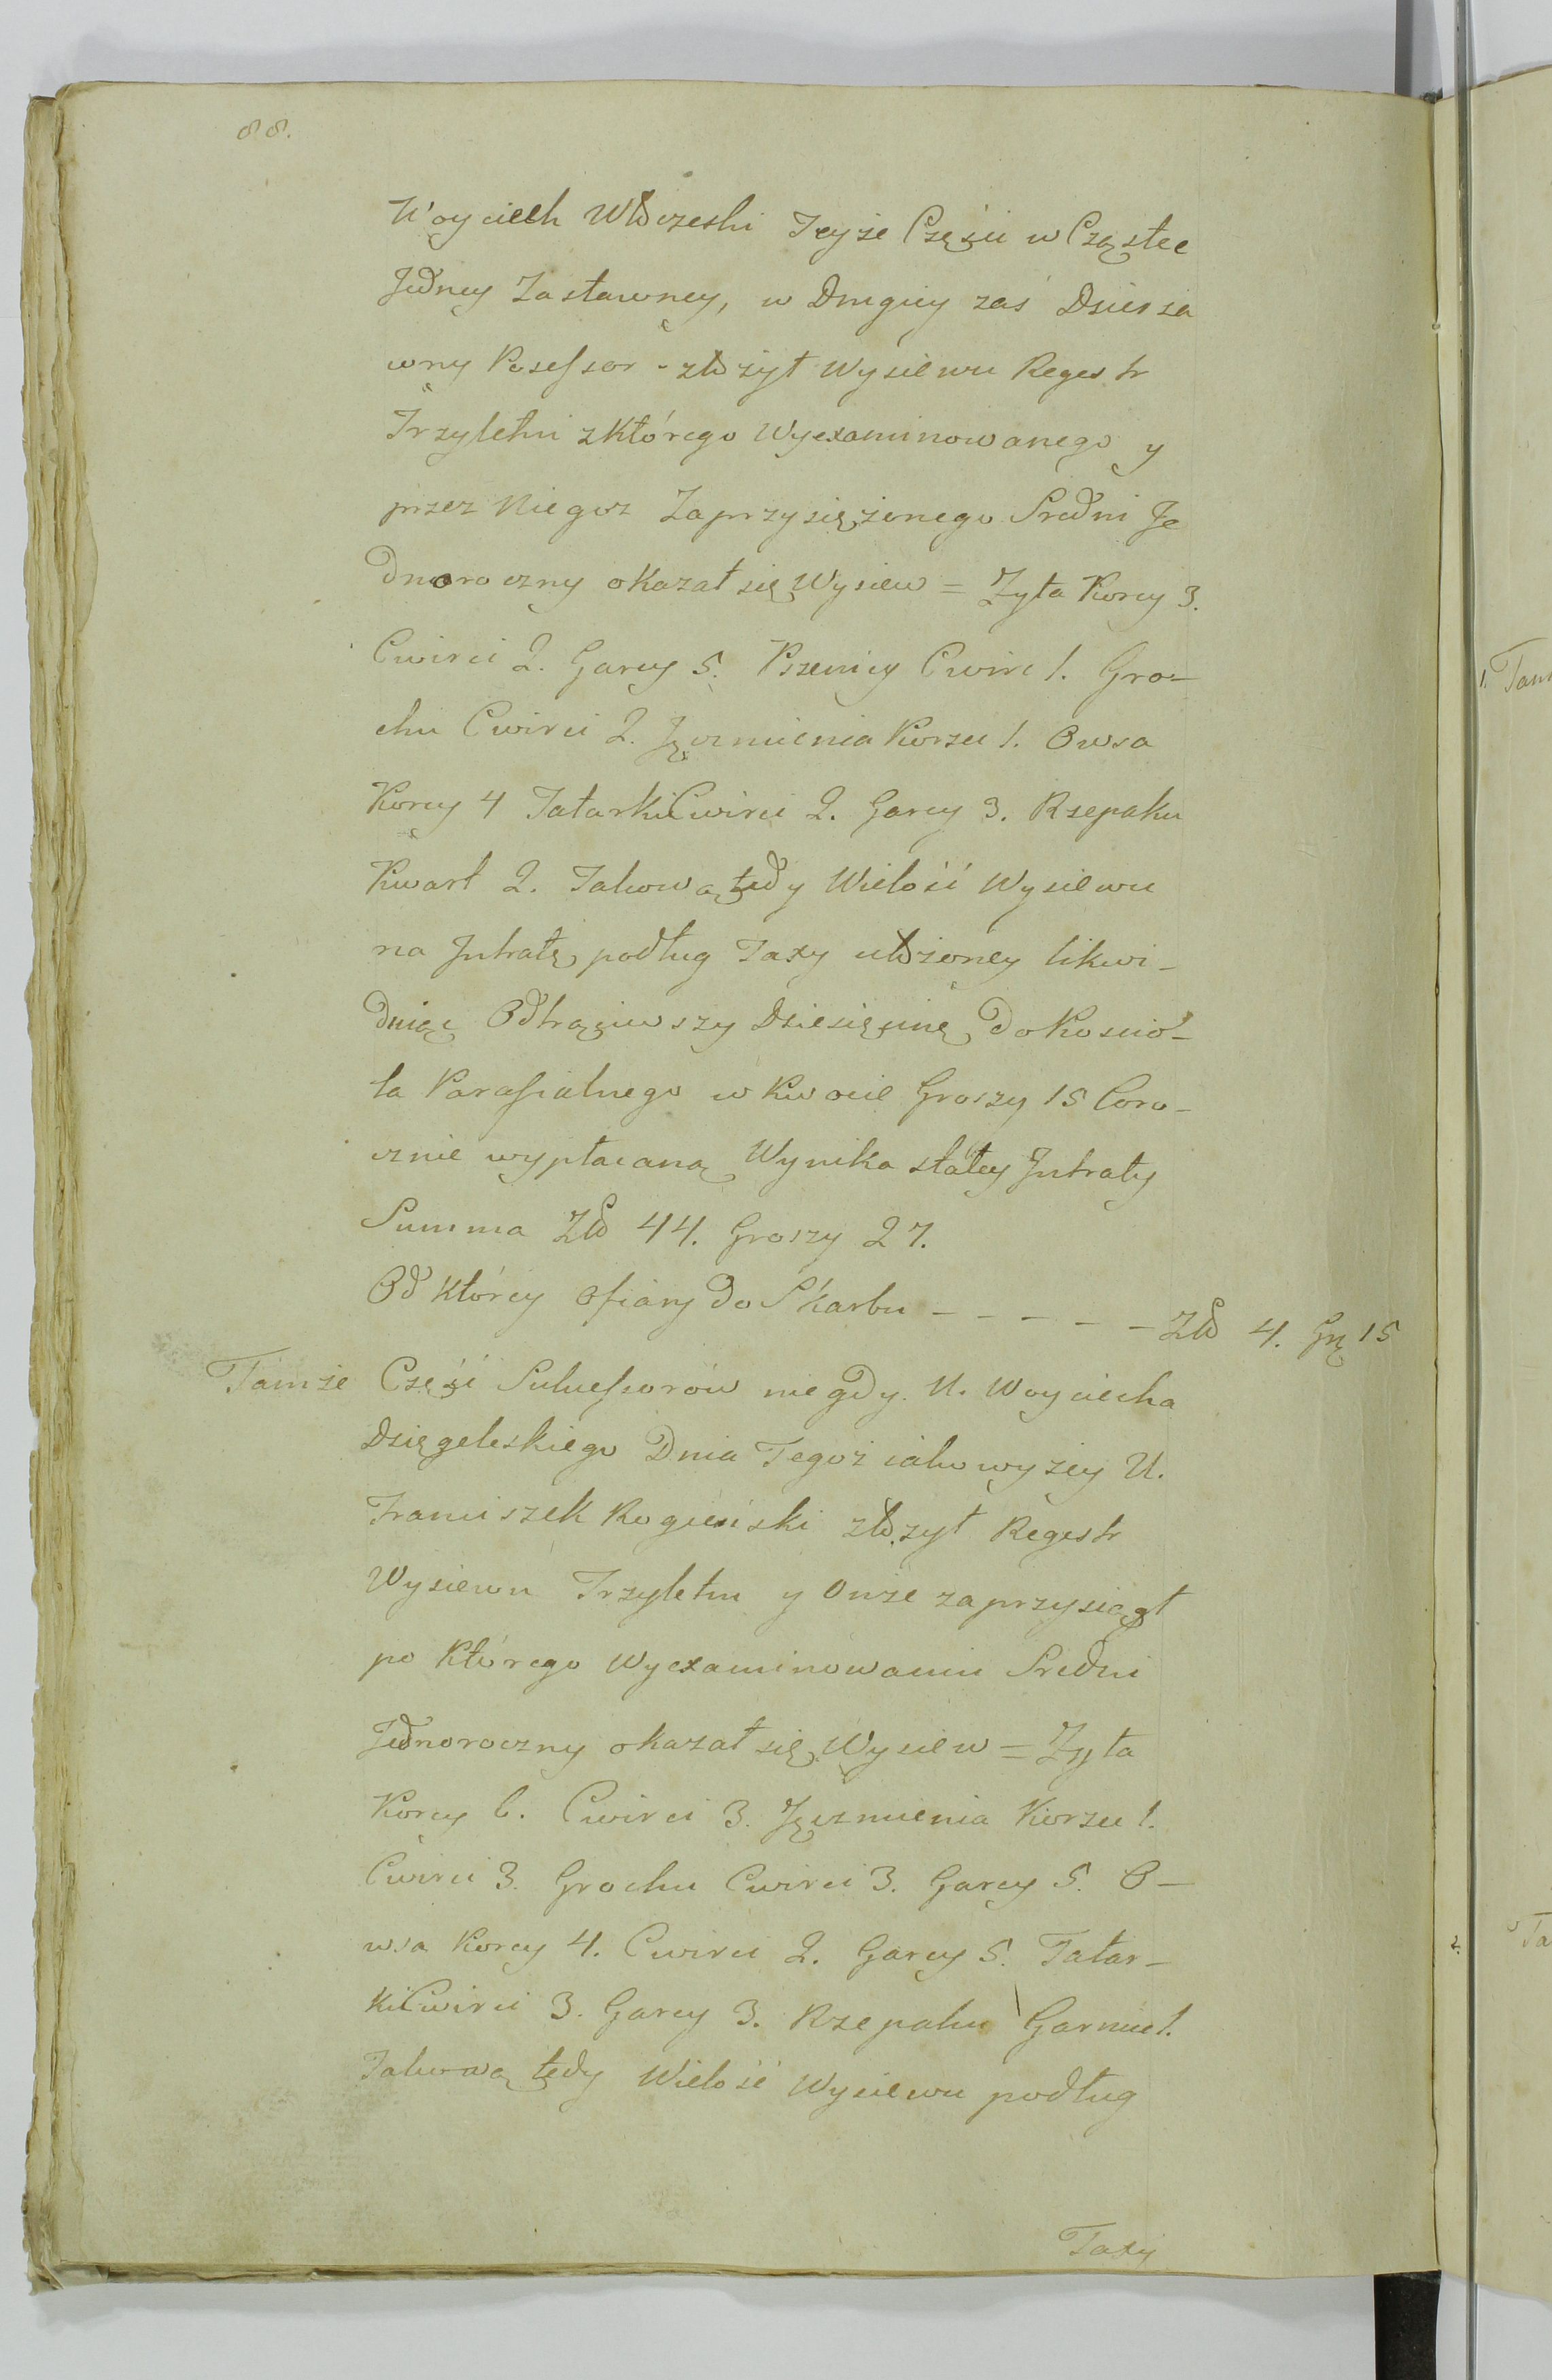 88.
Woyciech Włoczeski Teyże Części w Cząstce
Jedney Zastawney, w Drugiey zaś Dzierża
wny Possessor - złożył Wysiewu Regestr
Trzyletni z Którego Wyexaminowanego y
przez Niegoż Zaprzysiężonego Sredni Je
dnoroczny okazał się Wysiew = Zyta Korcy 3.
Cwierci 2. Garcy 5. Pszenicy Cwierc 1. Gro-
chu Cwierci 2. Jęczmienia Korzec 1. Owsa
Korcy 4 Tatarki Cwierci 2. Garcy 3. Rzepaku
Kwart 2. Takową tedy Wielość Wysiewu
na Intratę podług Taxy ułożoney likwi-
duiąc Odtrąciwszy Dziesięcinę do Koscio-
ła Parafialnego w Kwocie Groszy 15 Coro-
cznie wypłacaną Wynika stałey Intraty
Summa Zło 44. Groszy 27.
Od Którey Ofiary do Skarbu - - - - - Zło 4. Grę 15
Tamże Część Sukcessorow niegdy. U. Woyciecha
Dzięgeleskiego Dnia Tegoż iako wyżey U.
Franciszek Rogieński złożył Regestr
Wysiewu Trzyletni y Onże zaprzysiągł
po Którego Wyexaminowaniu Sredni
Jednoroczny okazał się Wysiew = Zyta
Korcy 6. Cwierci 3. Jęczmienia Korzec 1.
Cwierci 3. Grochu Cwierci 3. Garcy 5. O-
wsa Korcy 4. Cwierci 2. Garcy 5. Tatar-
ki Cwierci 3. Garcy 3. Rzepaku Garniec 1.
Takową tedy Wielość Wysiewu podług
Taxy
1. Tam
2. Ta